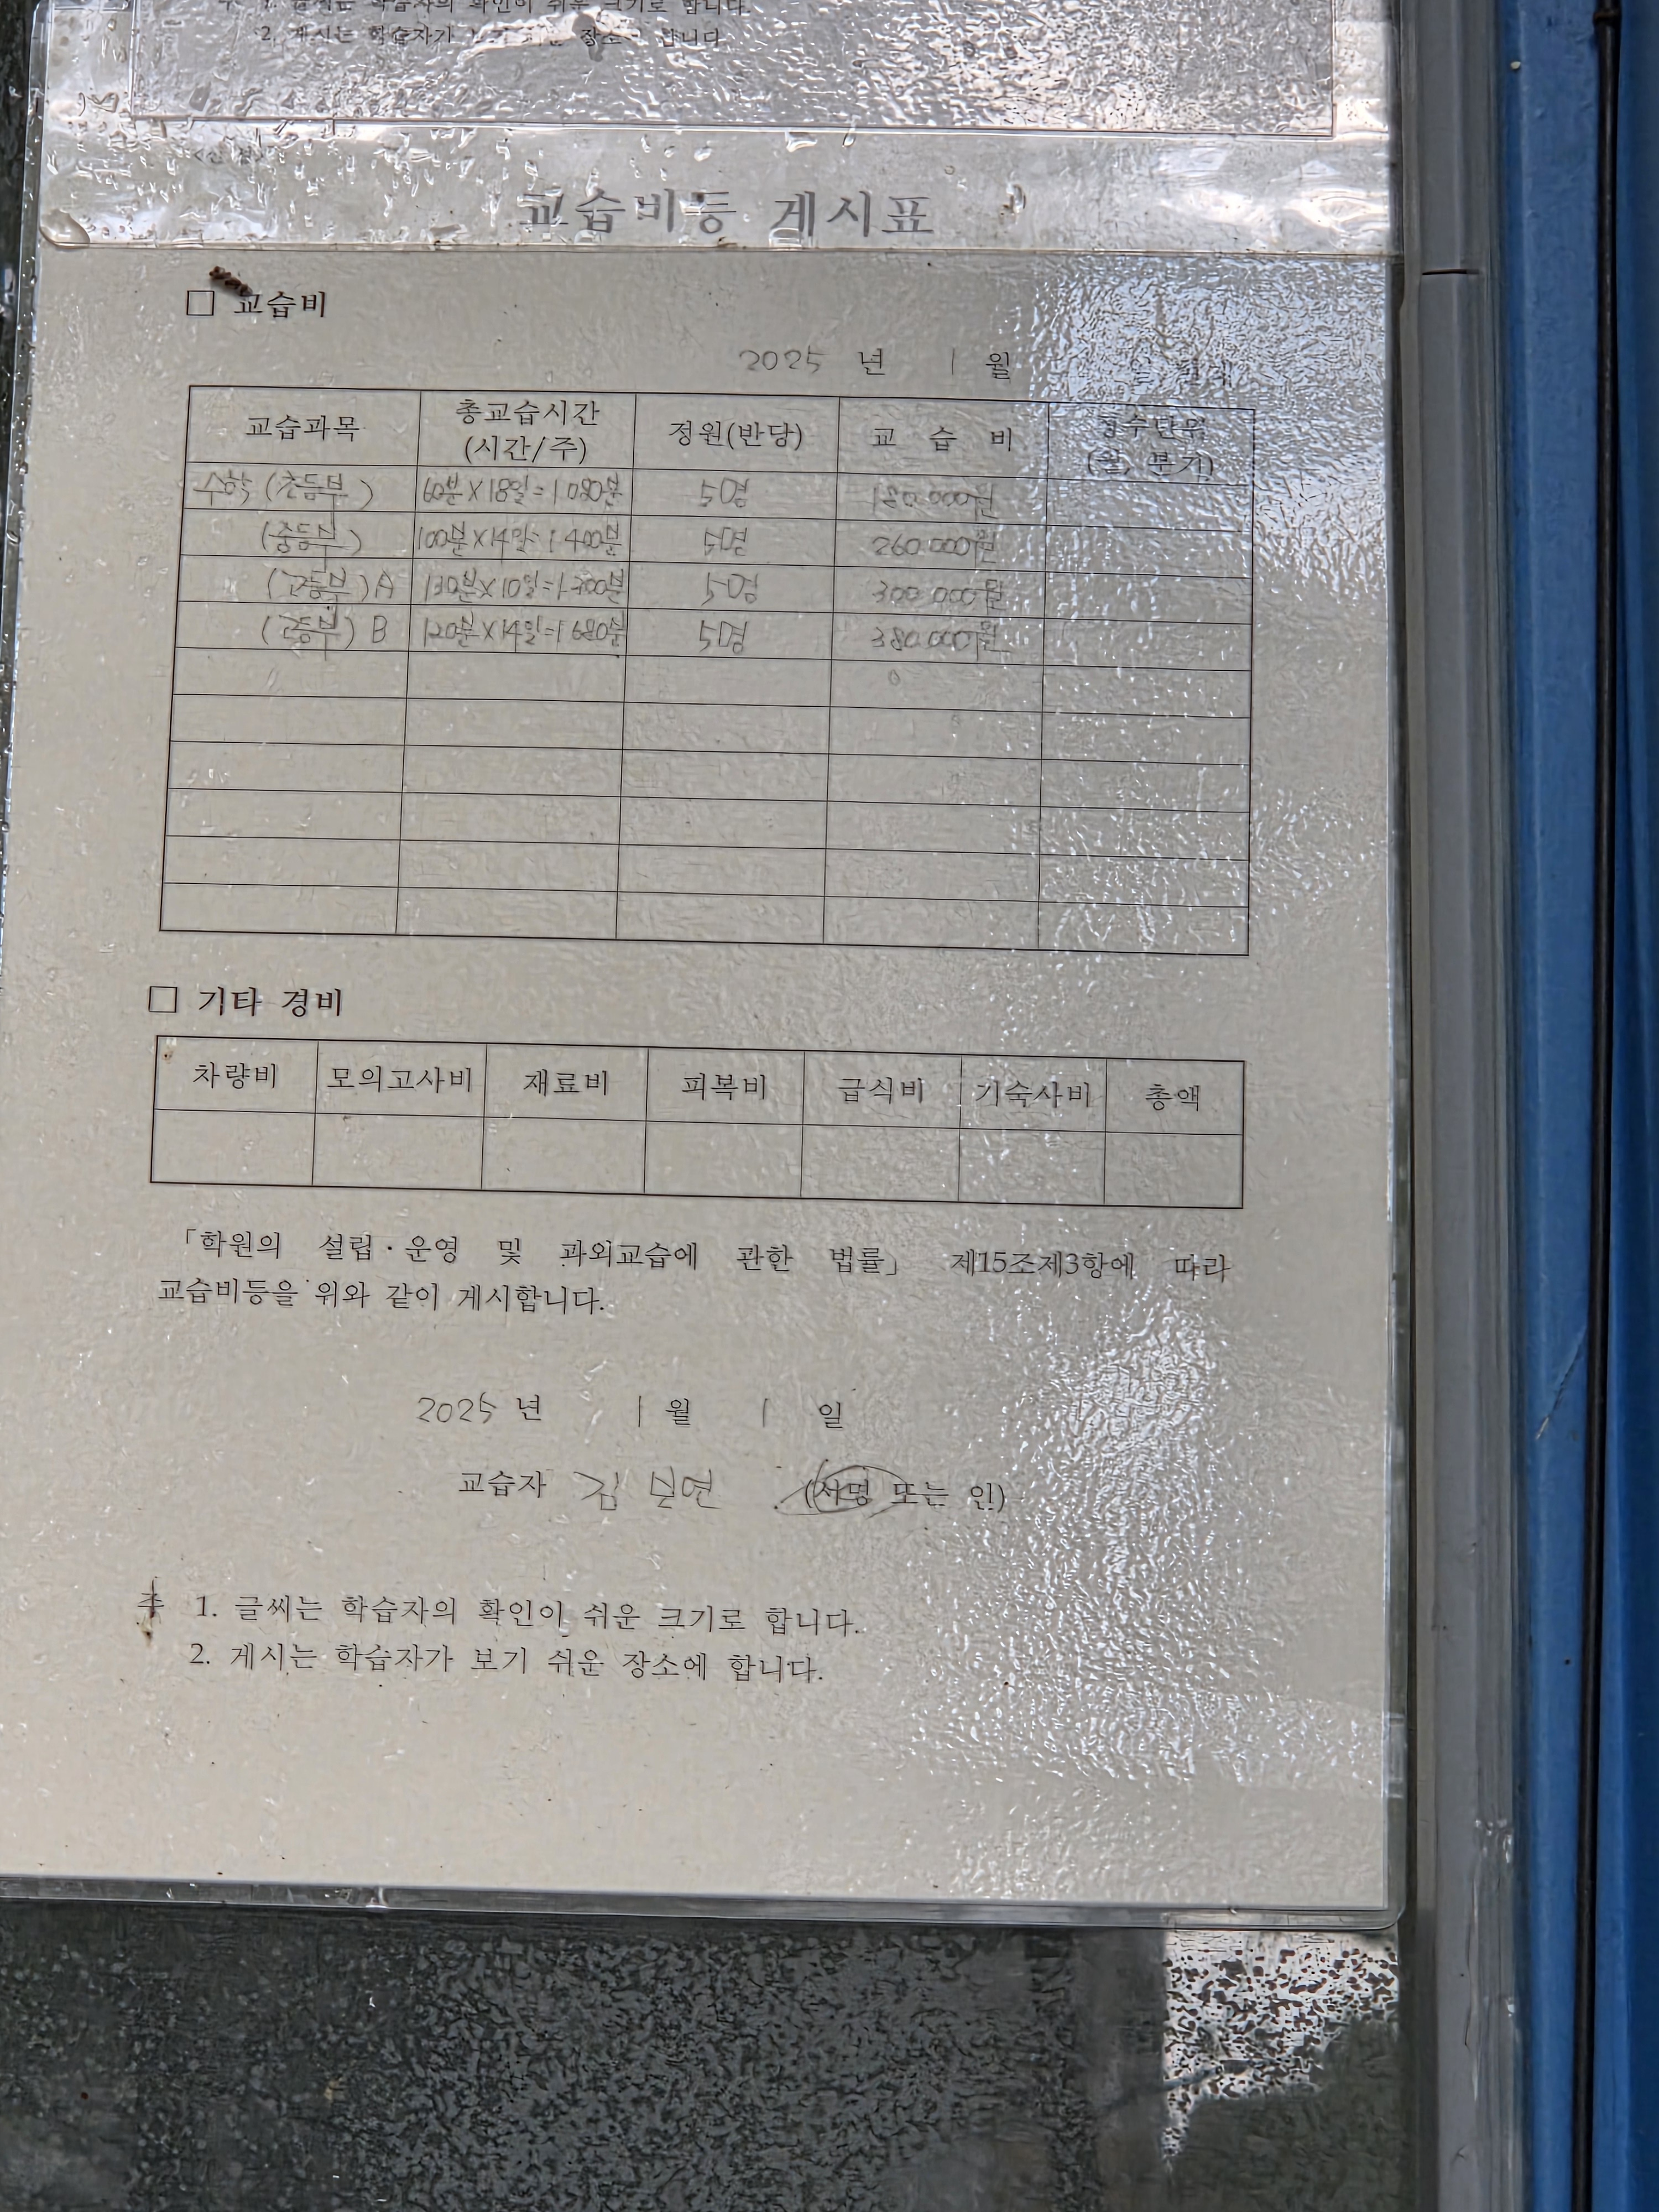 2. 게시는 학습자가 보기 쉬운 장소에 합니다
교습비등 게시표
□ 교습비
2025 년 1 월
교습과목 총교습시간 (시간/주) 정원(반당) 교 습 비 징수단위 (월, 분기)
수학 (초등부) 60분×18일=1080분 5명 180.000원
(중등부) 100분×14일=1400분 5명 260.000원
(고등부)A 130분×10일= 5명 300.000원
(고등부) B 120분×14일=1680분 5명 380.000원
□ 기타 경비
차량비 모의고사비 재료비 피복비 급식비 기숙사비 총액
「학원의 설립·운영 및 과외교습에 관한 법률」 제15조제3항에 따라
교습비등을 위와 같이 게시합니다.
2025 년 1 월 1 일
교습자 김 보연 (서명 또는 인)
주 1. 글씨는 학습자의 확인이 쉬운 크기로 합니다.
2. 게시는 학습자가 보기 쉬운 장소에 합니다.